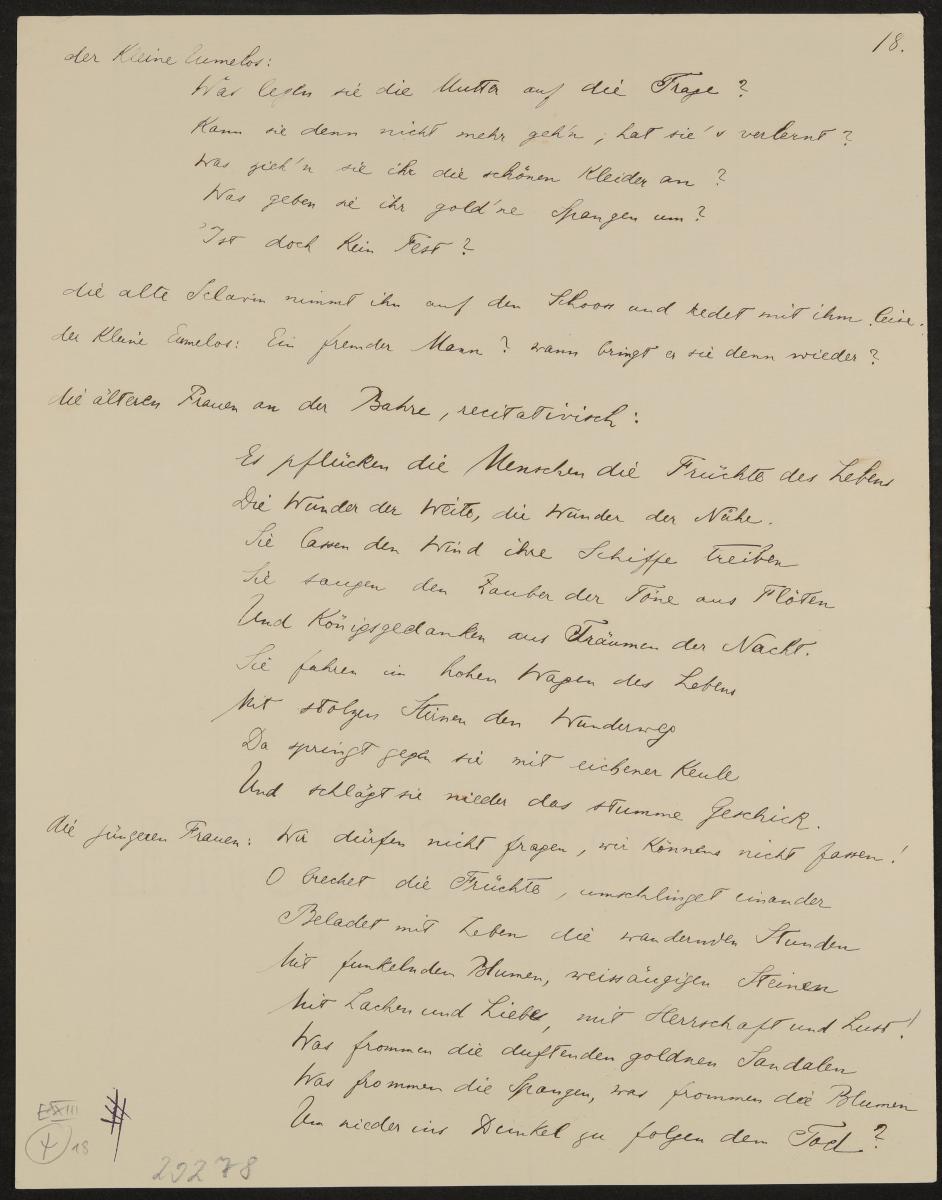 18.
der Kleine Eumelos:
Was legen sie die Mutter auf die Trage?
Kann sie denn nicht mehr geh'n, hat sie's verlernt?
Was zieh'n sie ihr die schönen Kleider an?
Was geben sie ihr gold'ne Spangen um?
'Ist doch Kein Fest?
die alte Sclavin nimmt ihn auf den Schooss und redet mit ihm leise.
der Kleine Eumelos: Ein fremder Mann? wann bringt er sie denn wieder?
die älteren Frauen an der Bahre, recitativisch:
Es pflücken die Menschen die Früchte des Lebens
Die Wunder der Weite, die Wunder der Nähe.
Sie lassen den Wind ihre Schiffe treiben
Sie saugen den Zauber der Töne aus Flöten
Und Königsgedanken aus Träumen der Nacht.
Sie fahren im hohen Wagen des Lebens
Mit stolzen Stirnen den Wunderweg
Da springt gegen sie mit eichener Keule
Und schlägt sie nieder das stumme Geschick.
die jüngeren Frauen: Wir dürfen nicht fragen, wir Könnens nicht fassen!
O brechet die Früchte, umschlinget einander
Beladet mit Leben die wandernden Stunden
Mit funkelnden Blumen, weissäugigen Steinen
Mit Lachen und Liebe, mit Herrschaft und Lust!
Was frommen die duftenden goldnen Sandalen
Was frommen die Spangen, was frommen die Blumen
Um nieder ins Dunkel zu folgen dem Tod?
E XIII
4 18
29278